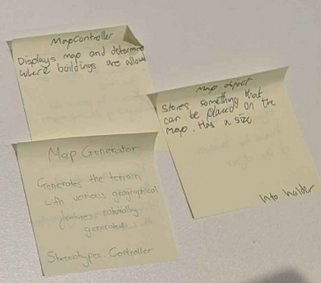 MapController
Displays map and determin
where buildings are allow
Map object
Stores something that
can be placed on the
Map. Has a size
Info holder
Map Generator
Generates the terrain
with various geographical
features naturally
generated.
Stereotypes: Controller